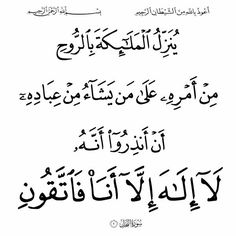 أعوذ بالله من الشيطان الرجيم بسم الله الرحمن الرحيم
يُنَزِّلُ الْمَلَـٰٓئِكَةَ بِالرُّوحِ
مِنْ أَمْرِهِۦ عَلَىٰ مَن يَشَآءُ مِنْ عِبَادِهِۦٓ
أَنْ أَنذِرُوٓا۟ أَنَّهُۥ
لَآ إِلَـٰهَ إِلَّآ أَنَا۠ فَٱتَّقُونِ
سورة النحل ٢